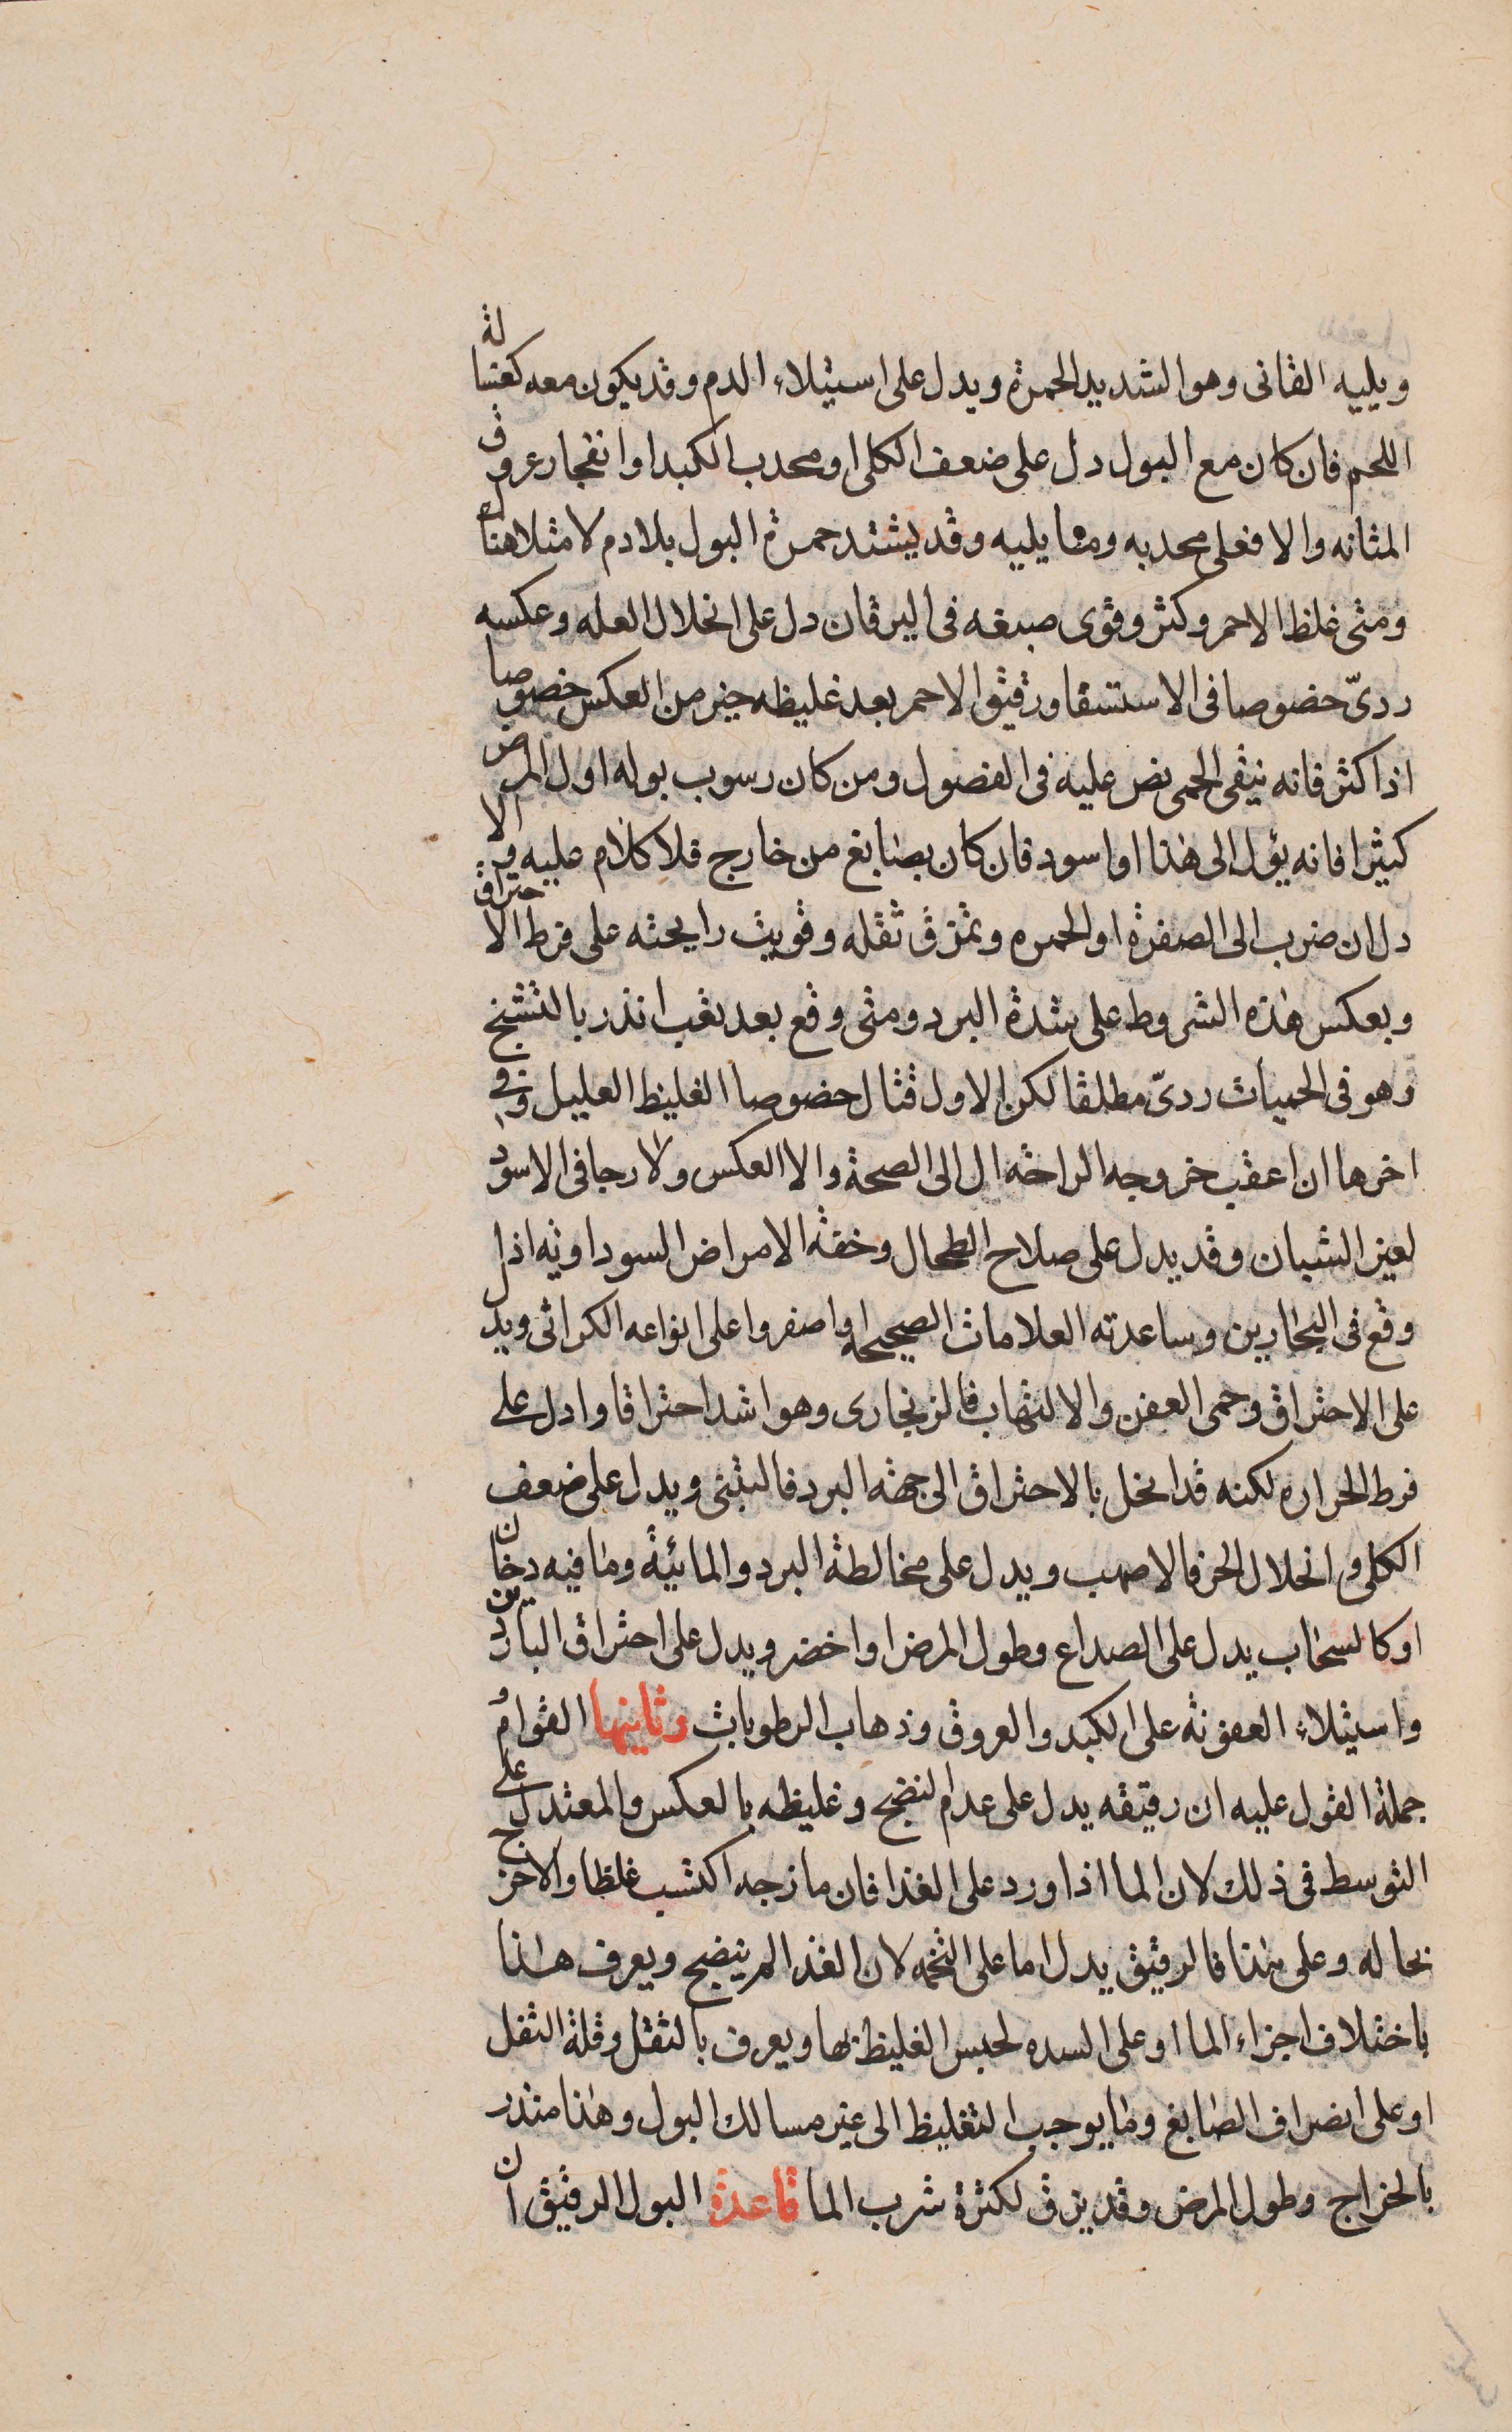 ويليه القانى وهو الشديد الحمرة ويدل على استيلاء الدم وقد يكون معه كغسالة
اللحم فان كان مع البول دل على ضعف الكلى او محدب الكبد او انفجار عروق
المثانه والا فعلى محدبه وما يليه وقد يشتد حمرة البول بلا دم لامتلاء هناك
ومتى غلظ الاحمر وكثر وقوى صبغه فى اليرقان دل على انحلال العله وعكسه
ردىّ خصوصا فى الاستسقا ورقيق الاحمر بعد غليظه خير من العكس خصوصا
اذا كثر فانه ينقى الحمى نص عليه فى الفصول ومن كان رسوب بوله اول المرض
كثيرا فانه يؤل الى هذا او اسود فان كان بصابغ من خارج فلا كلام عليه والا
دل ان ضرب الى الصفرة او الحمره وتمزق ثقله وقويت رايحته على فرط الاحتراق
وبعكس هذه الشروط على شدة البرد ومتى وقع بعد تعب انذر بالتشنج
وهو فى الحميات ردىّ مطلقا لكن الاول قتال خصوصا الغليظ العليل وفى
اخرها ان اعقب خروجه الراحة ال الى الصحة والا العكس ولا رجا فى الاسود
لغير الشبان وقد يدل على صلاح الطحال وخفة الامراض السوداويه اذا
وقع فى البحارين وساعدته العلامات الصحيحه او اصفر واعلى انواعه الكراثى ويدل
على الاحتراق وحمى العفن والالتهاب فالزنجارى وهو اشد احتراقا وادل على
فرط الحراره لكنه قد انحل بالاحتراق الى جهة البرد فالتبنى ويدل على ضعف
الكلى وانحلال الحر فالاصهب ويدل على مخالطة البرد والمائية وما فيه دخان
او كالسحاب يدل على الصداع وطول المرض او اخضر ويدل على احتراق الباردين
واستيلاء العفونة على الكبد والعروق وذهاب الرطوبات وثانيها القوام و
جملة القول عليه ان رقيقه يدل على عدم النضج وغليظه بالعكس والمعتدل على
التوسط فى ذلك لان الما اذا ورد على الغذا فان مازجه اكتسب غلظا والا خرج
بحاله وعلى هذا فالرقيق يدل اما على التخمه لان الغذا لم ينضج ويعرف هذا
باختلاف اجزاء الما او على السده لحبس الغليظ بها ويعرف بالثقل وقلة الثفل
او على انصراف الصابغ وما يوجب التغليظ الى غير مسالك البول وهذا منذر
بالخراج وطول المرض وقد يرق لكثرة شرب الما قاعدة البول الرقيق ان